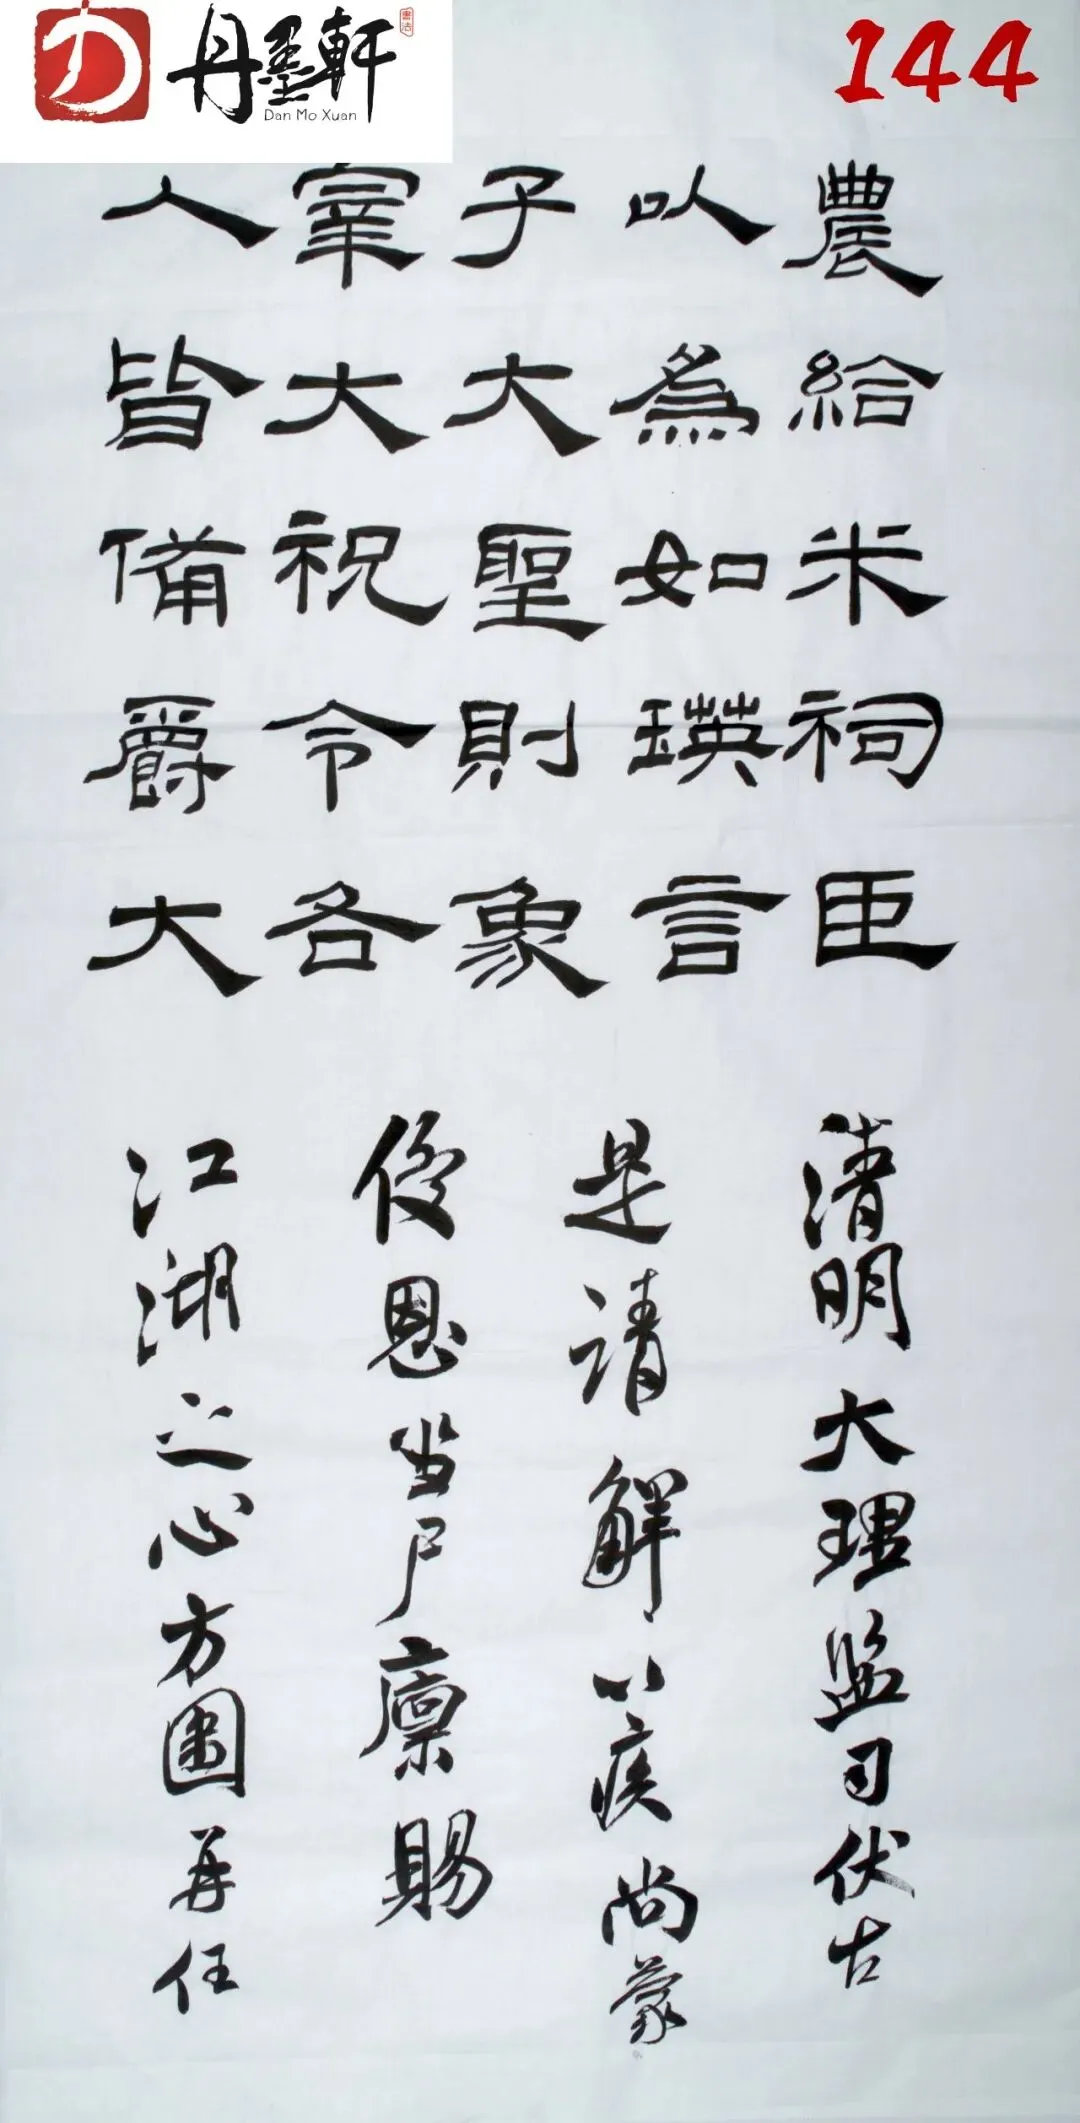 丹墨軒
書法
Dan Mo Xuan
144
農給米祠臣
以為如瑛言
子大聖則象
宰大祝令各
人皆備爵大
清明大理监司伏古
是請解以疾尚蒙
優恩当尸廩賜
江湖之心方圖再任